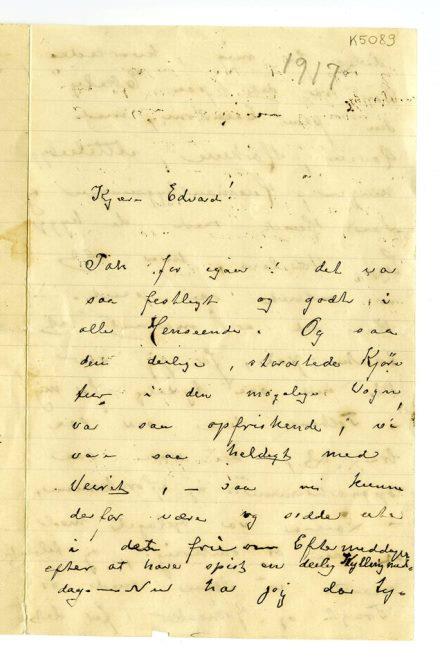 K5089
1917
Kjære Edvard!
Tak for igaar! det var
saa festligt og godt i
alle Henseender. Og saa
den deilige, storartede Kjøre
tur i den magelige Vogn,
var saa opfriskende, vi
var saa heldigt med
Veiret, – saa vi kunne
derfor være og sidde ute
i det frie om Eftermiddagen
efter at have spist en deilig Kyllingmid-
dag – Nu har jeg da